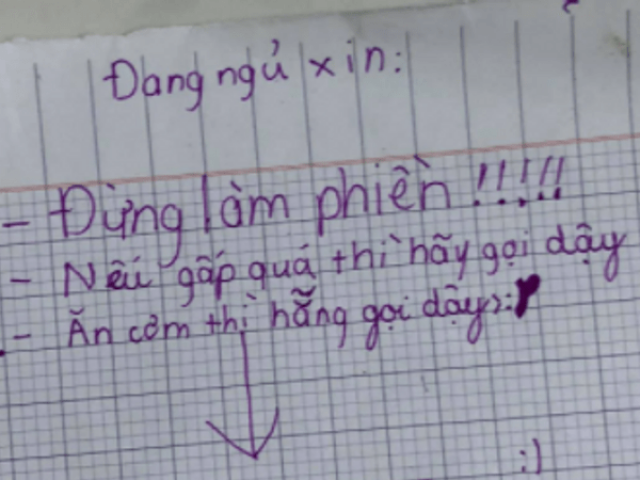 Đang ngủ xin:
- Đừng làm phiền !!!!!
- Nếu gấp quá thì hãy gọi dậy
- Ăn cơm thì hẵng gọi dậy
:)